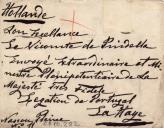 Hollande
Son Excellence
Le Vicomte de Pindella
Envoyé Extraordinaire et Mi-
nistre Plénipotentiaire de Sa
Majesté Très Fidèle
Légation de Portugal
La Haye